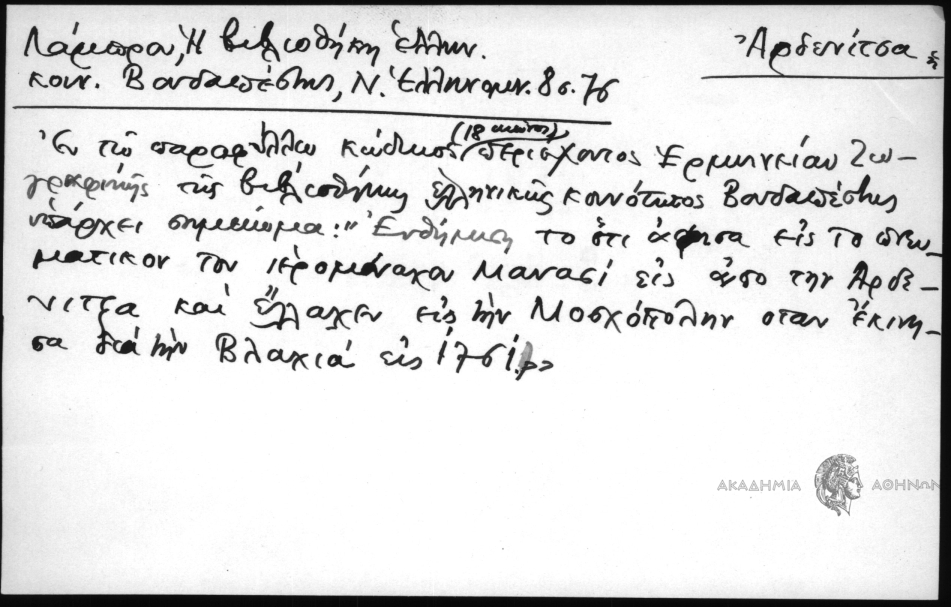 Λάμπρου, Ἡ βιβλιοθήκη ἑλλην.
κοιν. Βουδαπέστης, Ν. Ἑλληνομν. 8 σ. 76
Ἀρδενίτσα
(18 αἰῶνος)
Ἐν τῷ παραφύλλῳ κώδικος περιέχοντος Ἑρμηνείαν Ζω-
γραφικῆς τῆς βιβλιοθήκης ἑλληνικῆς κοινότητος Βουδαπέστης
ὑπάρχει σημείωμα: "Ἐνθήμιση το ὅτι ἀφησα εἰς το πνευ-
ματικον τον ιερομόναχον Μανασί εἰς ἀπο την Αρδε-
νιτζα καὶ ἔλαχεν εἰς τὴν Μοσχόπολην οταν ἐκινη-
σα διὰ τὴν Βλαχιά εἰς 1761.»
ΑΚΑΔΗΜΙΑ ΑΘΗΝΩΝ